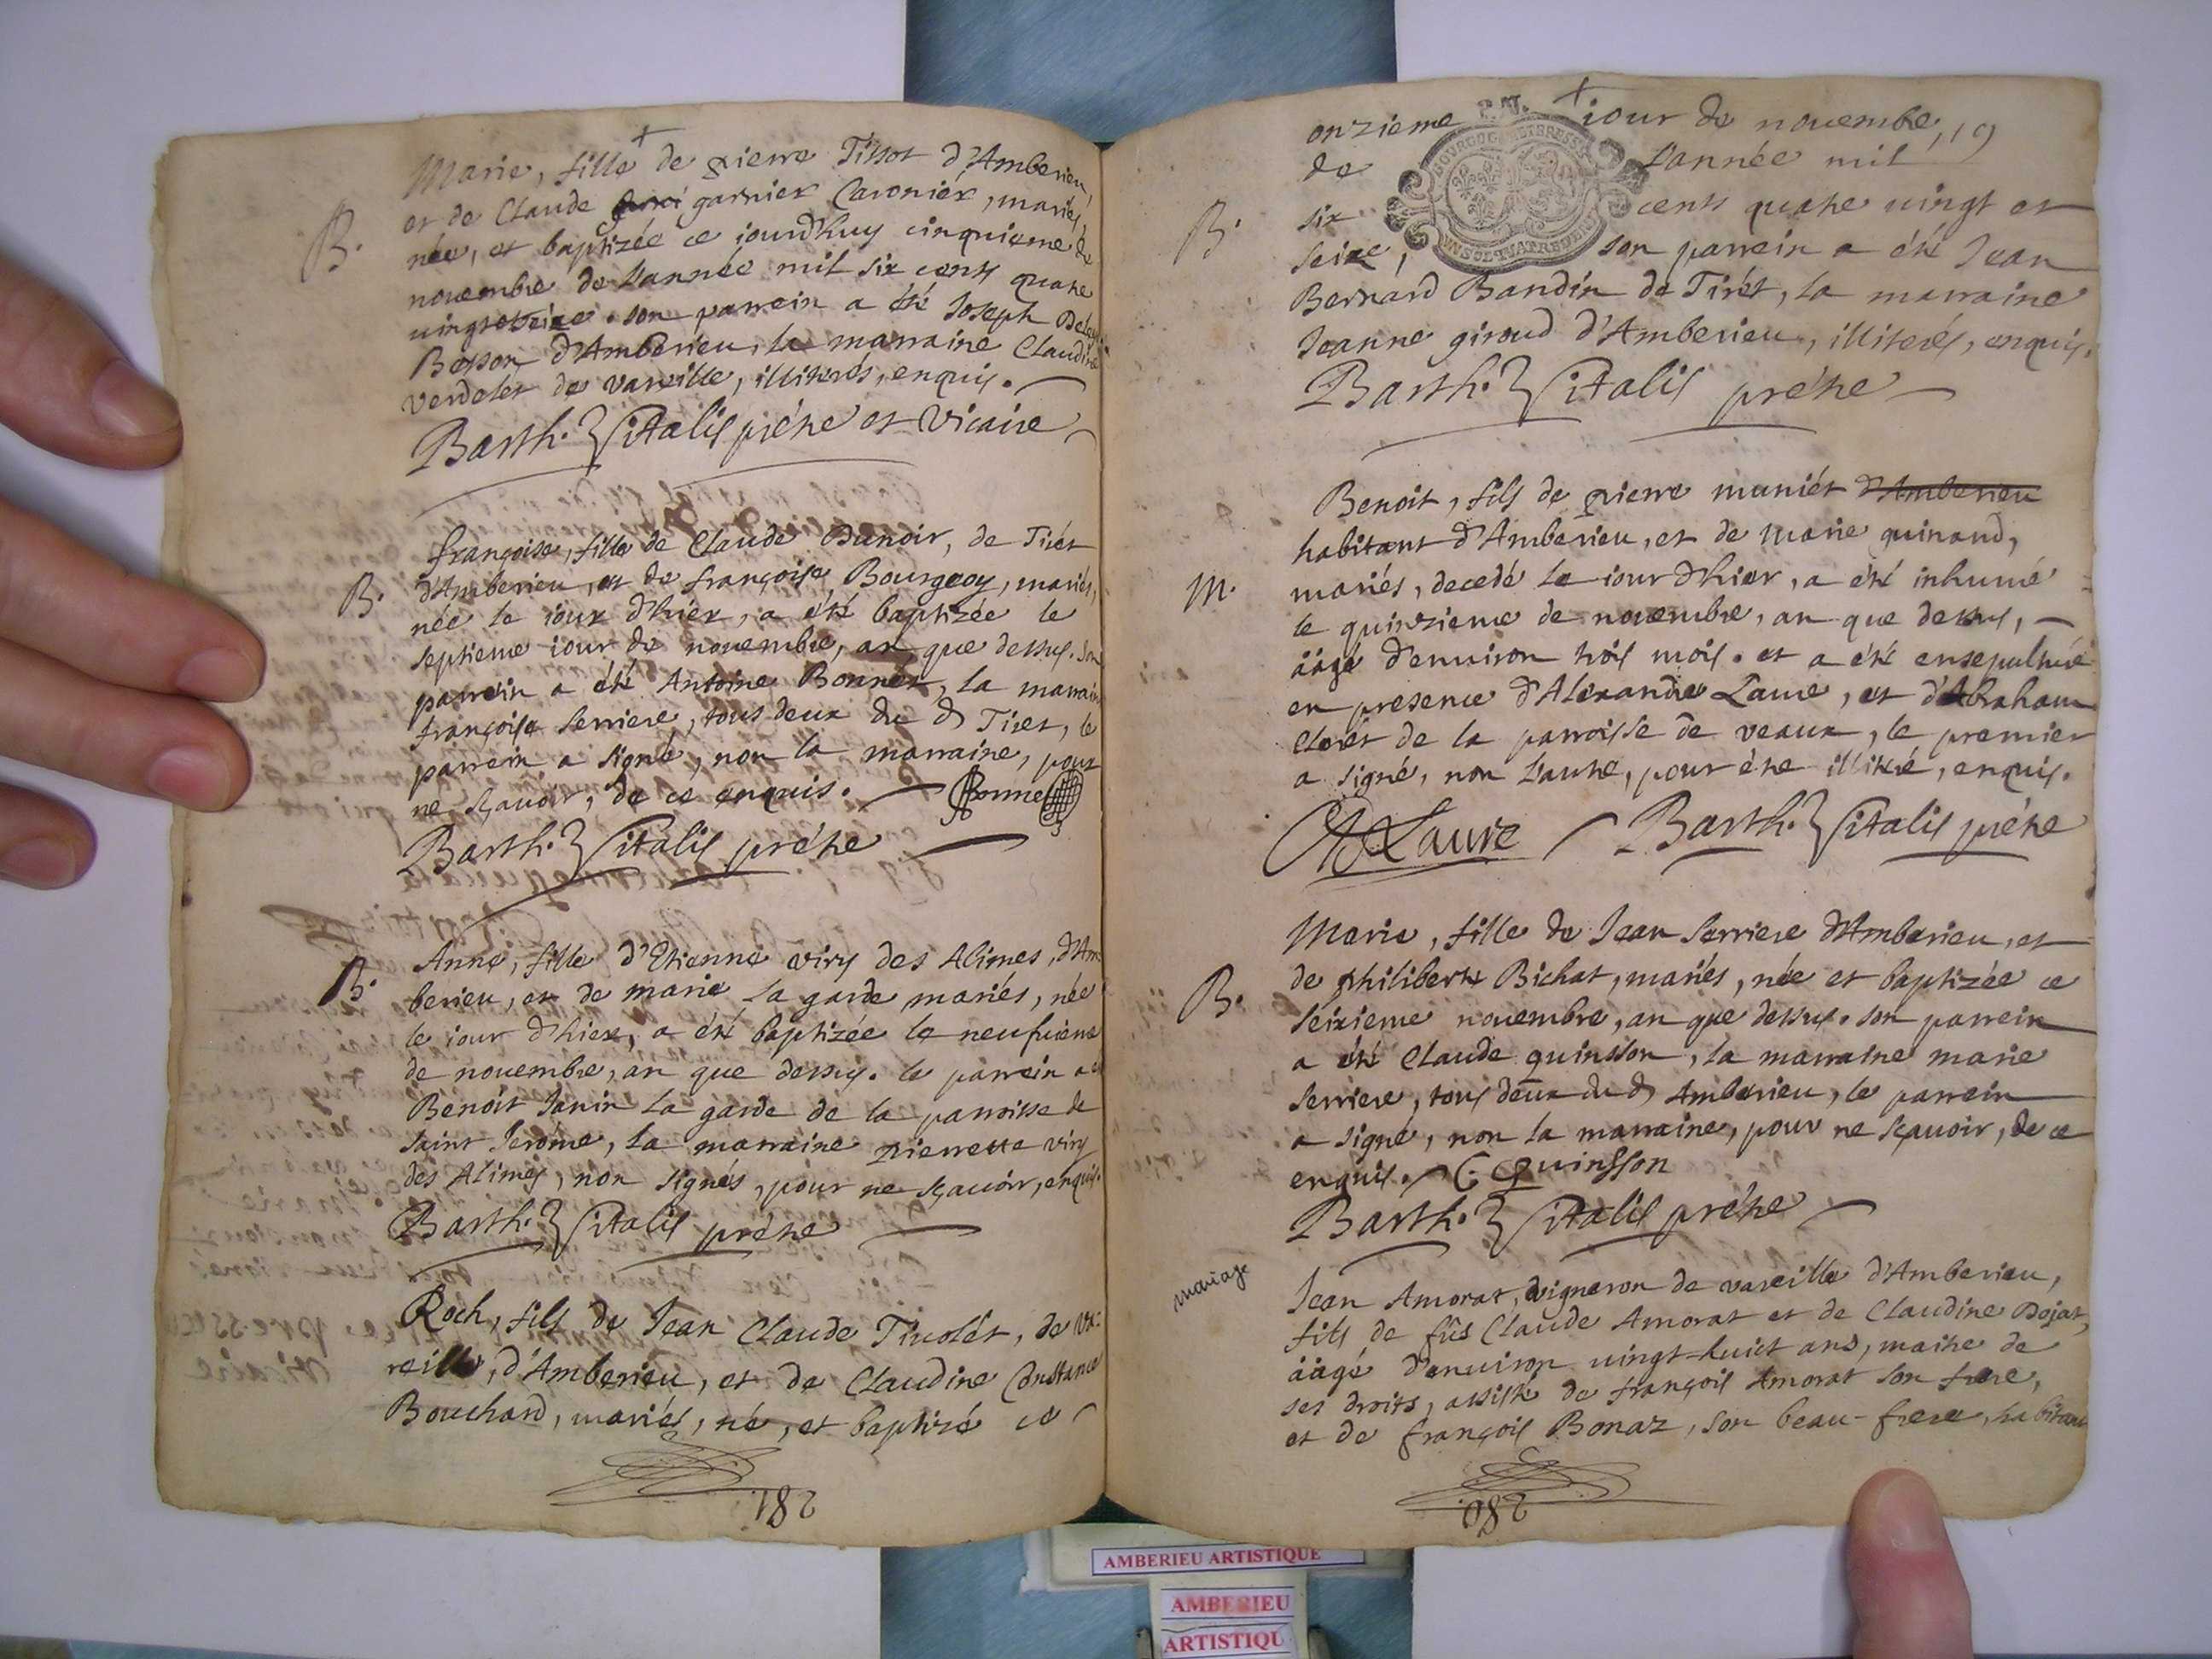 Marie, fille de pierre Tissot d'Amberieu,
et de Claude garnier Caronier, mariés,
B. née, et baptizée ce iourdhuy cinquieme de
novembre de L'année mil six cents quatre
vingt et seize. son parrein a été Joseph
Besson d'Amberieu, la marraine Claudine
verdelet de vareille, illiterés, enquis.
Barth. Vitalis prétre et Vicaire
françoise, fille de Claude Dunoir, de Tirét
B. d'Amberieu, et de françoise Bourgeoy, mariés,
née le iour d'hier, a été baptizée le
septieme iour de novembre, an que dessus. son
parrein a été Antoine Bonnet, la marraine
françoise serriere, tous deux du d Tiret, le
parrein a signé, non la marraine, pour
ne sçavoir, de ce enquis. Bonnet
Barth. Vitalis prétre
Anne, fille d'Etienne viry des Alimes, d'Am
B. berieu, et de marie La garde mariés, née
le iour d'hier, a été baptizée le neufvieme
de novembre, an que dessus. le parrein a été
Benoit Janin La garde de la parroisse de
saint Jerôme, la marraine pierrette viry
des Alimes, non signés, pour ne sçavoir, enquis.
Barth. Vitalis prétre
Roch, fils de Jean Claude Tivolét, de va:
reille, d'Amberieu, et de Claudine Constance
Bouchard, mariés, né, et baptizé ce
281.
onzieme iour de novembre, 19
de L'année mil
B. six cents quatre vingt et
seize, son parrein a été Jean
Bernard Bandin de Tirét, la marraine
Jeanne giroud d'Amberieu, illiterés, enquis.
Barth. Vitalis prétre
Benoit, fils de pierre muniét d'Amberieu
habitant d'Amberieu, et de marie quinaud,
M. mariés, decedé le iour d'hier, a été inhumé
le quinzieme de novembre, an que dessus,
ââgé d'environ trois mois. et a été ensepulturé
en presence d'Alexandre Laure, et d'Abraham
Cloret de la parroisse de veaux, le premier
a signé, non L'autre, pour étre illitéré, enquis.
A Laure Barth. Vitalis prétre
Marie, fille de Jean serriere d'Amberieu, et
de philiberte Bichat, mariés, née et baptizée ce
B. seizieme novembre, an que dessus. son parrein
a été Claude quinsson, la marraine marie
serriere, tous deux du d Amberieu, le parrein
a signé, non la marraine, pour ne sçavoir, de ce
enquis. C. Quinsson
Barth. Vitalis prétre
mariage
Jean Amorat, vigneron de vareille d'Amberieu,
fils de fûs Claude Amorat et de Claudine Dojat,
ââgé d'environ vingt-huict ans, maitre de
ses droits, assisté de françois Amorat son frere,
et de françois Bonaz, son beau-frere, habitant
280.
AMBERIEU ARTISTIQUE
AMBERIEU
ARTISTIQU